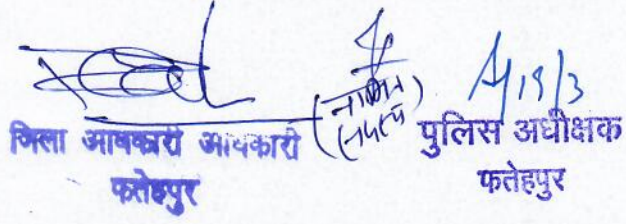 जिला आबकारी अधिकारी
फतेहपुर
19/3
पुलिस अधीक्षक
फतेहपुर